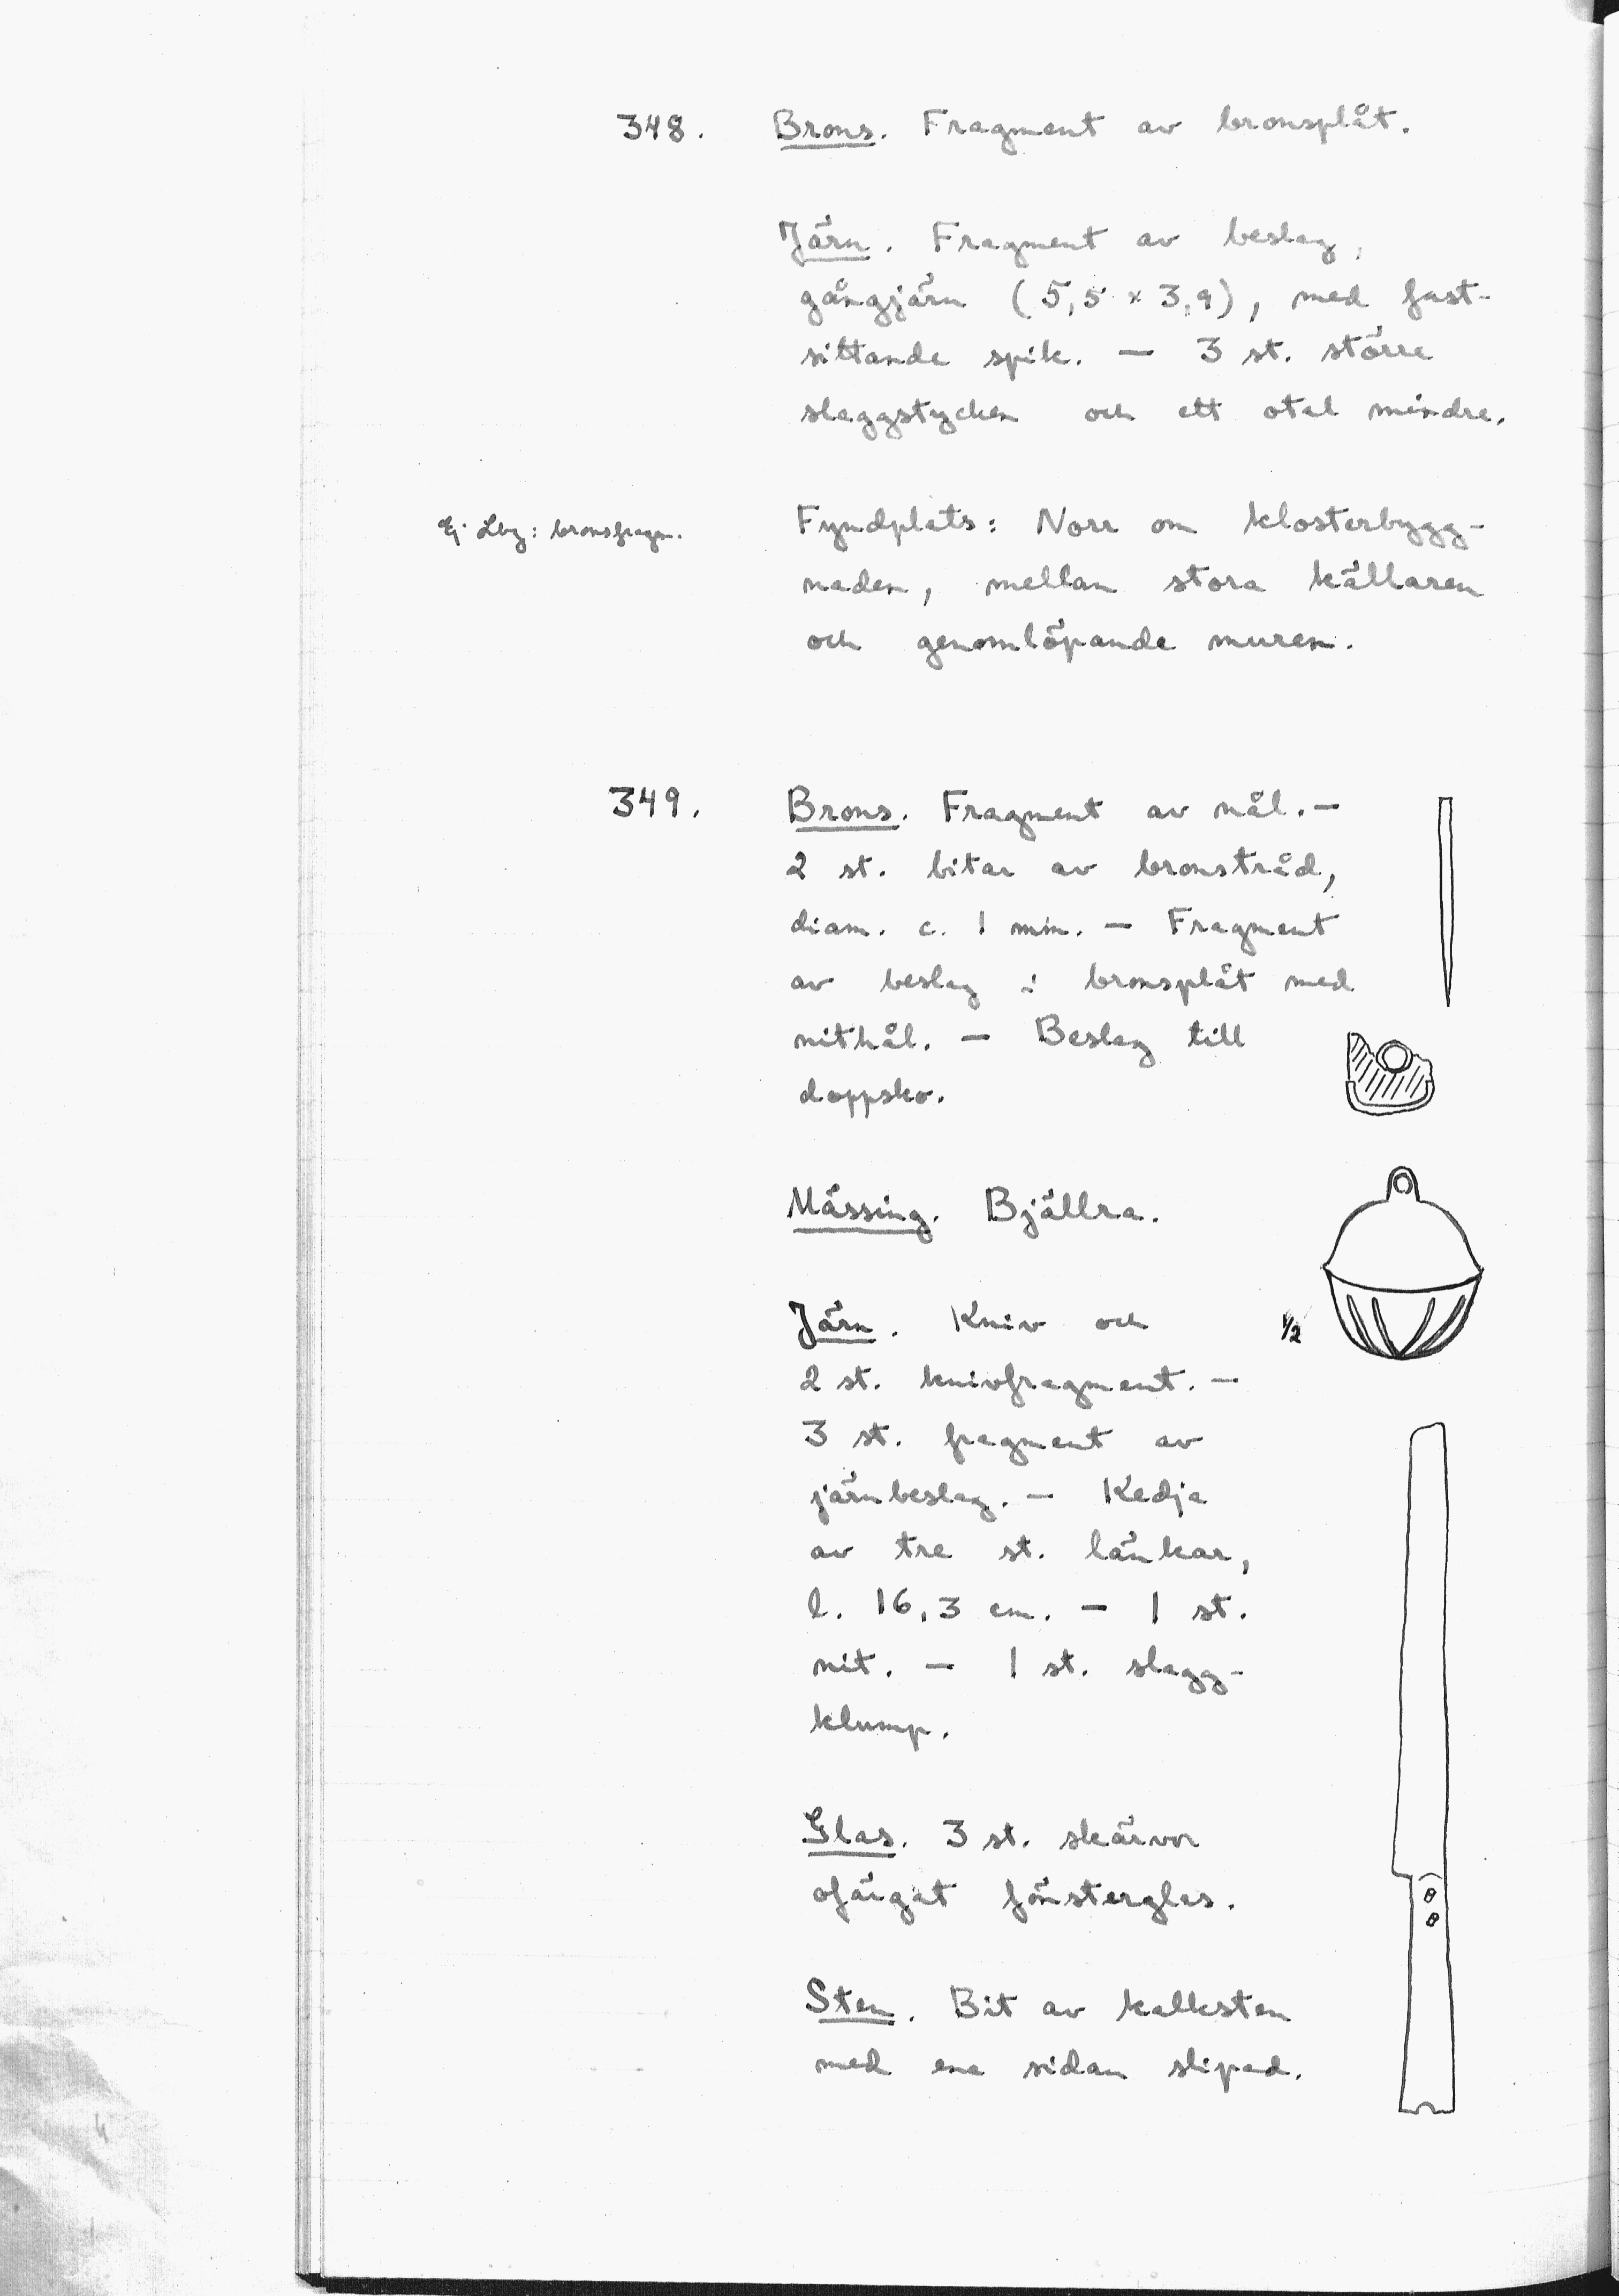 348. Brons. Fragment av bronsplåt.
Järn. Fragment av beslag,
gångjärn (5,5 × 3,9), med fast-
sittande spik. — 3 st. större
slaggstycken och ett otal mindre.
Ej Lbg: bronsfragm.
Fyndplats: Norr om klosterbygg-
naden, mellan stora källaren
och genomlöpande muren.
349. Brons. Fragment av nål. —
2 st. bitar av bronstråd,
diam. c. 1 mm. — Fragment
av beslag i bronsplåt med
nithål. — Beslag till
doppsko.
Mässing. Bjällra.
Järn. Kniv och
1/2
2 st. knivfragment. —
3 st. fragment av
järnbeslag. — Kedja
av tre st. länkar,
l. 16,3 cm. — 1 st.
nit. — 1 st. slagg-
klump.
Glas. 3 st. skärvor
ofärgat fönsterglas.
Sten. Bit av kalksten
med ena sidan slipad.